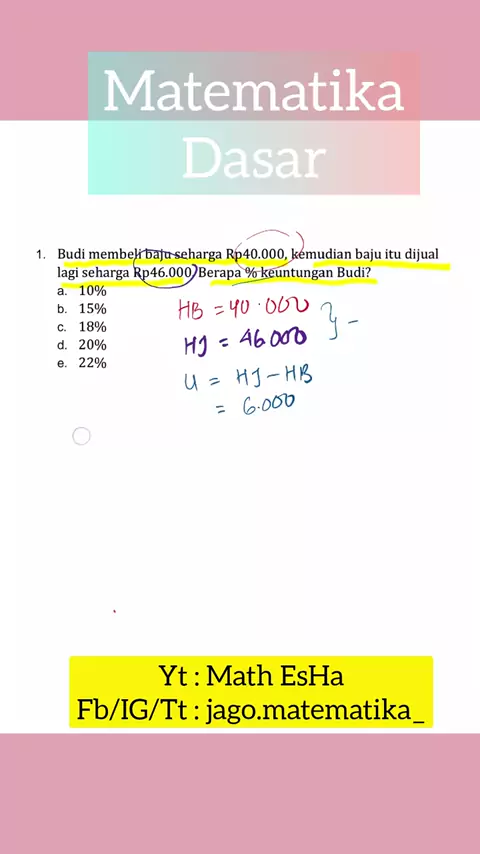 Matematika
Dasar
1. Budi membeli baju seharga Rp40.000, kemudian baju itu dijual
lagi seharga Rp46.000. Berapa % keuntungan Budi?
a. 10%
b. 15%
c. 18%
d. 20%
e. 22%
HB = 40.000
HJ = 46.000
U = HJ - HB
= 6.000
Yt : Math EsHa
Fb/IG/Tt : jago.matematika_